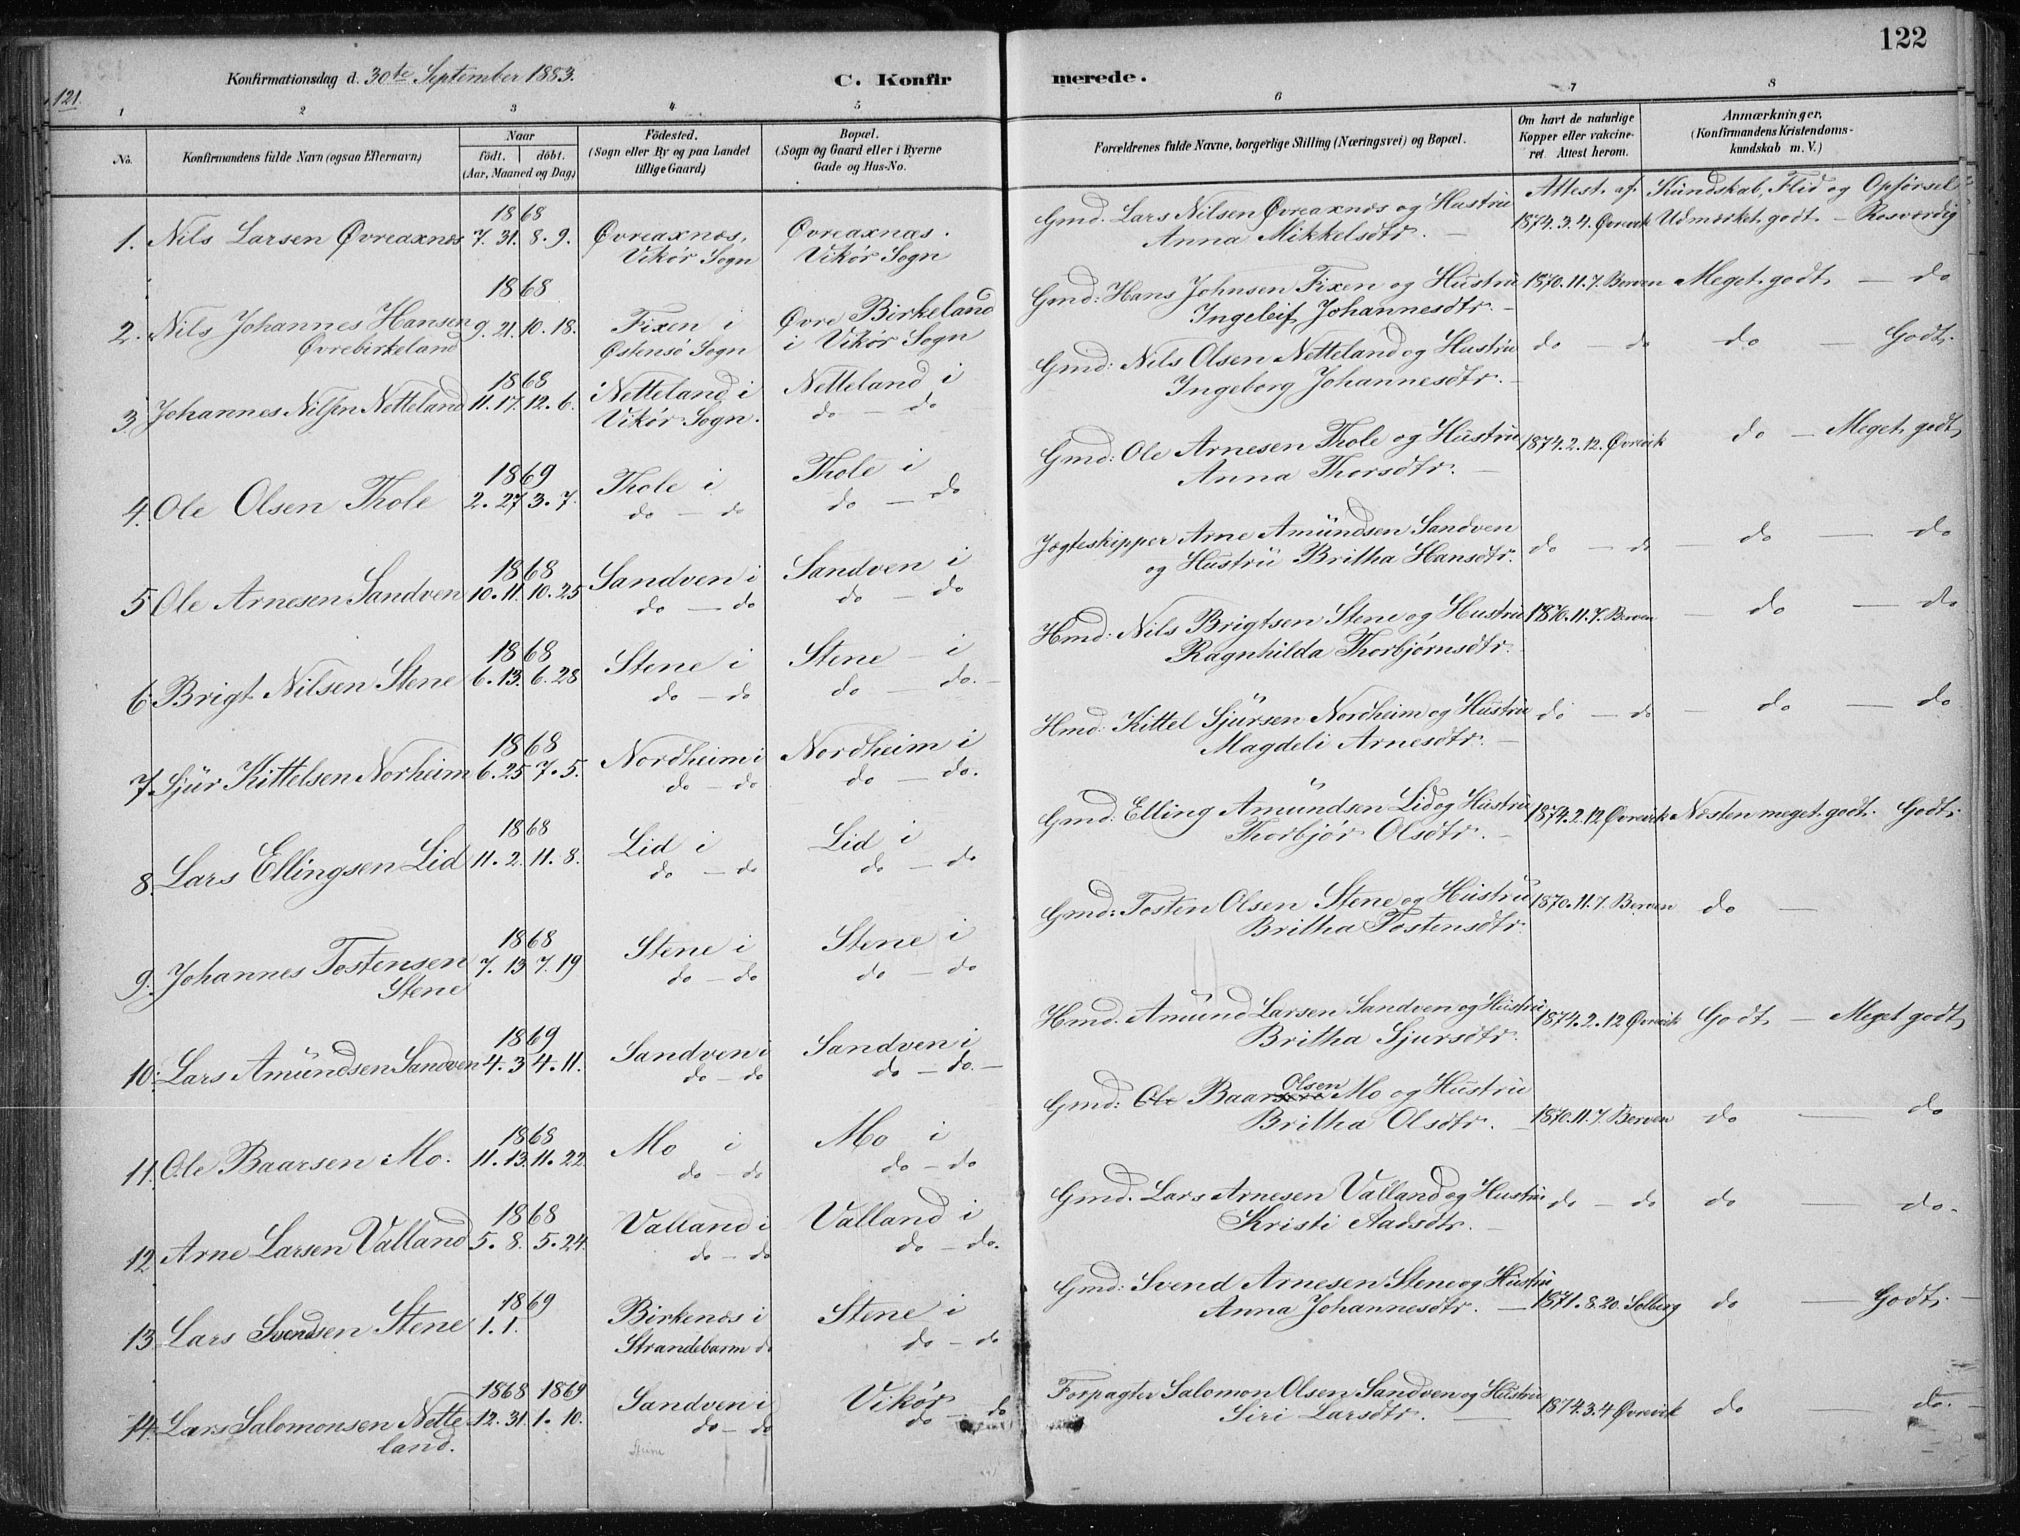 122
Konfirmationsdag d. 30te September 1883.
C. Konfirmerede.
121.
1 2 3 4 5 6 7 8
No.
Konfirmandens fulde Navn (ogsaa Efternavn)
Naar
födt. döbt.
(Aar, Maaned og Dag)
Födested.
(Sogn eller By og paa Landet
tillige Gaard)
Bopæl.
(Sogn og Gaard eller i Byerne
Gade og Hus-No.
Forældrenes fulde Navne, borgerlige Stilling (Næringsvei) og Bopæl.
Om havt de naturlige
Kopper eller vakcine-
ret. Attest herom.
Anmærkninger.
(Konfirmandens Kristendoms-
kundskab m. V.)
Attest af Kundskab, Flid og Opførsel
1. Nils Larsen Øvreaxnæs 1868 7. 31. 8. 9. Øvreaxnæs, Vikör Sogn Øvreaxnæs. Vikör Sogn
Gmd. Lars Nilsen Øvreaxnæs og Hustru
Anna Mikkelsdtr. — 1874.3.4. Øvrevik Udmærket godt. — Rosværdig
2. Nils Johannes Hansen
Øvrebirkeland 1868 9. 21. 10. 18. Fixen i Østensö Sogn Øvre Birkeland i Vikör Sogn
Gmd: Hans Johnsen Fixen og Hustru
Ingeleif Johannesdtr. — 1870.11.7. Berven Meget godt. — do
3. Johannes Nilsen Netteland 1868 11. 17. 12. 6. Netteland i Vikör Sogn. Netteland i do — do
Gmd: Nils Olsen Netteland og Hustru
Ingeborg Johannesdtr. — do — do do — Godt.
4. Ole Olsen Thole 1869 2. 27 3. 7. Thole i do — do Thole i do — do
Gmd: Ole Arnesen Thole og Hustru
Anna Thorsdtr. — 1874.2.12. Øvrevik do — Meget godt
5. Ole Arnesen Sandven 1868 10. 11. 10. 25 Sandven i do — do Sandven i do — do
Jægteskipper Arne Amundsen Sandven
og Hustru Britha Hansdtr. do — do — do — do
6. Brigt Nilsen Stene 1868 6. 13. 6. 28 Stene i do — do Stene i do — do. —
Hmd: Nils Brigtsen Stene og Hustru
Ragnhilda Thorbjørnsdtr. 1870.11.7. Berven — do — do
7. Sjur Kittelsen Norheim 1868 6. 25 7. 5. Nordheim i do — do Nordheim i do — do.
Hmd: Kittel Sjursen Nordheim og Hustru
Magdeli Arnesdtr. — do — do — do — do
8. Lars Ellingsen Lid 1868 11. 2. 11. 8. Lid i do — do Lid i do — do
Gmd: Elling Amundsen Lid og Hustru
Thorbjør Olsdtr. — 1874.2.12 Øvrevik Næsten meget godt. Godt.
9. Johannes Tostensen
Stene 1868 7. 13 7. 19 Stene i do — do Stene i do — do
Gmd: Tosten Olsen Stene og Hustru
Britha Tostensdtr. 1870.11.7. Berven do —
10. Lars Amundsen Sandven 1869 4. 3 4. 11. Sandven i do — do Sandven i do — do. —
Hmd. Amund Larsen Sandven og Hustru
Britha Sjursdtr. 1874.2.12 Øvrevik Godt — Meget godt
11. Ole Baarsen Mo. 1868 11. 13. 11. 22 Mo i do — do Mo i do — do
Gmd: Ole Baar Olsen Mo og Hustru
Britha Olsdtr. — 1870.11.7. Berven do — do
12. Arne Larsen Valland 1868 5. 8. 5. 24. Valland i do — do Valland i do — do.
Gmd. Lars Arnesen Valland og Hustru
Kristi Aadsdtr. — do — do do — do.
13. Lars Svendsen Stene 1869 1. 1. Birkenæs i Strandebarm do Stene i do — do
Gmd: Svend Arnesen Stene og Hustru
Anna Johannesdtr. — 1871.8.20. Solberg do — Godt. —
14. Lars Salomonsen Nette
land. 1868 1869 12. 31. 1. 10. Sandven i do — do Vikör do — do
Forpagter Salomon Olsen Sandven og Hustru
Siri Larsdtr. — 1874.3.4 Øvrevik do — do. —